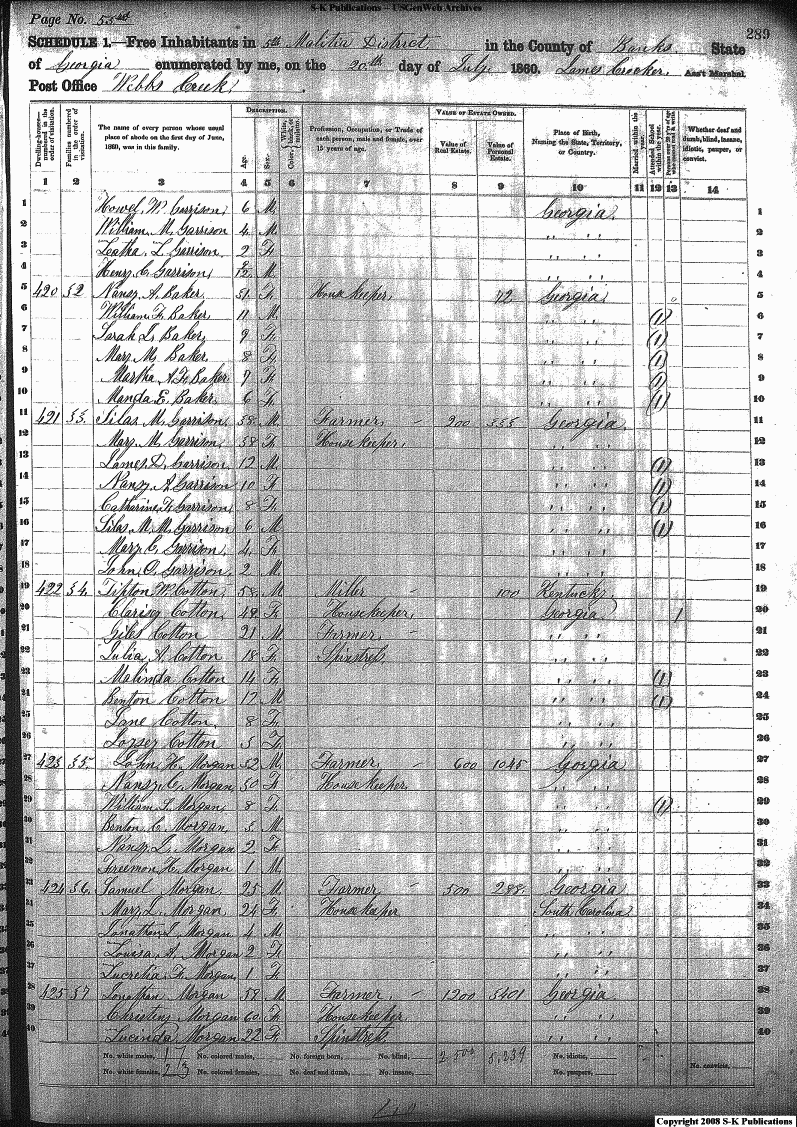 S-K Publications – USGenWeb Archives
Page No. 53
289
SCHEDULE 1.—Free Inhabitants in 5th Malitia District in the County of Banks State
of Georgia enumerated by me, on the 20th day of July 1860. James Crocker. Ass't Marshal.
Post Office Webbs Creek
Dwelling-houses—numbered in the order of visitation.
Families numbered in the order of visitation.
The name of every person whose usual place of abode on the first day of June, 1860, was in this family.
DESCRIPTION.
Age.
Sex.
Color, White, black, or mulatto.
Profession, Occupation, or Trade of each person, male and female, over 15 years of age.
VALUE OF ESTATE OWNED.
Value of Real Estate.
Value of Personal Estate.
Place of Birth, Naming the State, Territory, or Country.
Married within the year.
Attended School within the year.
Whether deaf and dumb, blind, insane, idiotic, pauper, or convict.
1 2 3 4 5 6 7 8 9 10 11 12 13 14
1 Howel W. Garrison 6 M. Georgia 1
2 William M. Garrison 4 M. " " 2
3 Letha L. Garrison 2 F. " " 3
4 Henry C. Garrison 2/12 M. " " 4
5 420 52 Nansy A. Baker 51 F. House keeper 12 Georgia 5
6 William F. Baker 11 M. " " (1) 6
7 Sarah L. Baker 9 F. " " (1) 7
8 Mary M. Baker 8 F. " " (1) 8
9 Martha A. F. Baker 7 F. " " (1) 9
10 Manda E. Baker 6 F. " " (1) 10
11 421 53 Silas M. Garrison 38 M. Farmer 200 355 Georgia 11
12 Mary M. Garrison 38 F. House keeper " " 12
13 James D. Garrison 12 M. " " (1) 13
14 Nansy A. Garrison 10 F. " " (1) 14
15 Catharine F. Garrison 8 F. " " (1) 15
16 Silas M. M. Garrison 6 M " " (1) 16
17 Mary C. Garrison 4 F. " " 17
18 John O. Garrison 2 M. " " 18
19 422 54 Tipton W. Cotton 58 M Miller 100 Kentucky 19
20 Clarisey Cotton 48 F. House keeper Georgia 1 20
21 Giles Cotton 21 M Farmer " " 21
22 Julia A. Cotton 18 F. Spinstrel " " 22
23 Malinda Cotton 14 F. " " (1) 23
24 Benton Cotton 12 M " " (1) 24
25 Jane Cotton 8 F. " " 25
26 Cotton 5 F. " " 26
27 423 55 John H. Morgan 32 M. Farmer 600 1045 Gorgia 27
28 Nansy C. Morgan 30 F. House keeper " " 28
29 William J. Morgan 8 F. " " (1) 29
30 Benton C. Morgan 5 M. " " 30
31 Nansy L. Morgan 2 F. " " 31
32 Freemon H. Morgan 1 M. " " 32
33 424 56 Samuel Morgan 25 M. Farmer 500 288 Georgia 33
34 Mary L. Morgan 24 F. House keeper South Carolina 34
35 Jonathan J. Morgan 4 M " " 35
36 Louisa A. Morgan 2 F. " " 36
37 Lucretia F. Morgan 1 F. " " 37
38 425 57 Jonathan Morgan 58 M. Farmer 1200 5401 Georgia 38
39 Christins Morgan 60 F. House keeper " " 39
40 Lucinda Morgan 22 F. Spinstrel " " 40
No. white males, 17 No. colored males, No. foreign born, No. blind, 2,500 No. idiotic,
No. white females, 23 No. colored females, No. deaf and dumb, No. insane, No. paupers, No. convicts,
Copyright 2008 S-K Publications